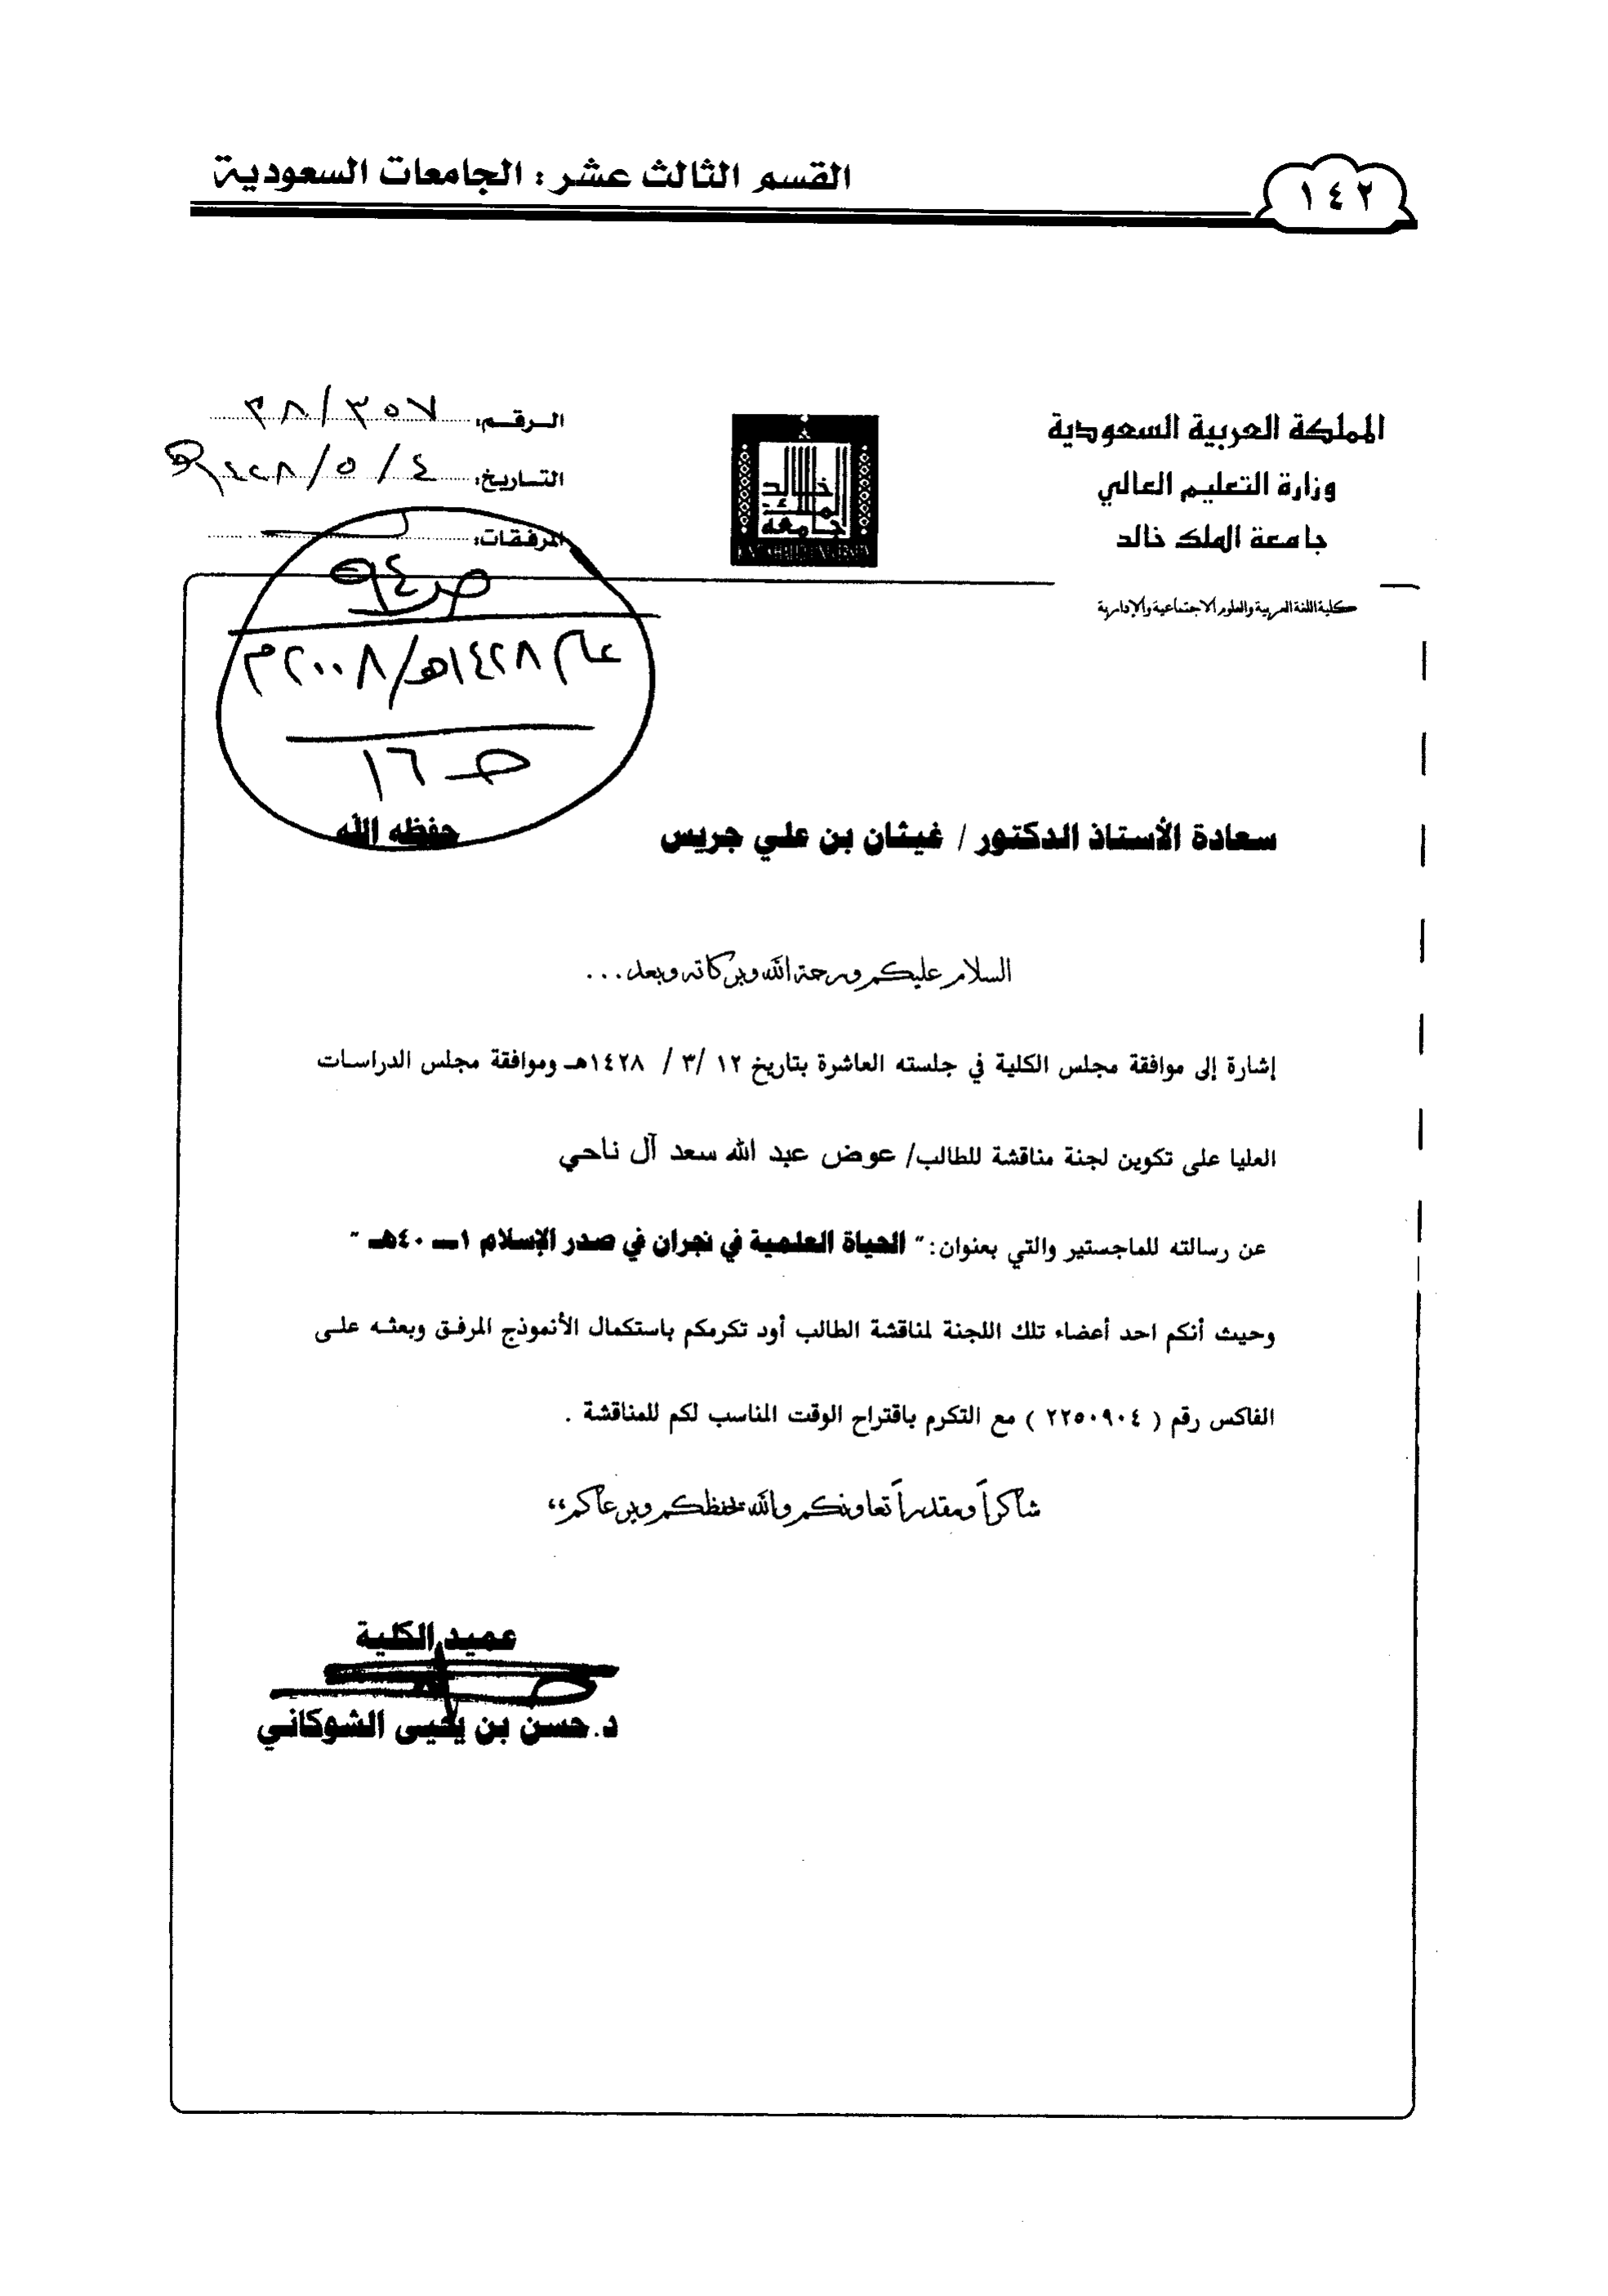 القسم الثالث عشر : الجامعات السعودية
١٤٢
المملكة العربية السعودية
وزارة التعليم العالي
جامعة الملك خالد
كلية اللغة العربية والعلوم الاجتماعية والإدارية
جامعة الملك خالد
الرقم: ٣٨/٣٥٧
التاريخ: ٤ / ٥ / ١٤٢٨هـ
المرفقات:
عام ١٤٢٨هـ/٢٠٠٨م
صـ ١٦
سعادة الأستاذ الدكتور / غيثان بن علي جريس حفظه الله
السلام عليكم ورحمة الله وبركاته وبعد...
إشارة إلى موافقة مجلس الكلية في جلسته العاشرة بتاريخ ١٢ /٣ / ١٤٢٨هـ وموافقة مجلس الدراسات
العليا على تكوين لجنة مناقشة للطالب/ عوض عبد الله سعد آل ناحي
عن رسالته للماجستير والتي بعنوان: " الحياة العلمية في نجران في صدر الإسلام ١ــ ٤٠هـ "
وحيث أنكم احد أعضاء تلك اللجنة لمناقشة الطالب أود تكرمكم باستكمال الأنموذج المرفق وبعثه على
الفاكس رقم ( ٢٢٥٠٩٠٤ ) مع التكرم باقتراح الوقت المناسب لكم للمناقشة .
شاكراً ومقدراً تعاونكم والله يحفظكم ويرعاكم،،
عميد الكلية
د. حسن بن يحيى الشوكاني